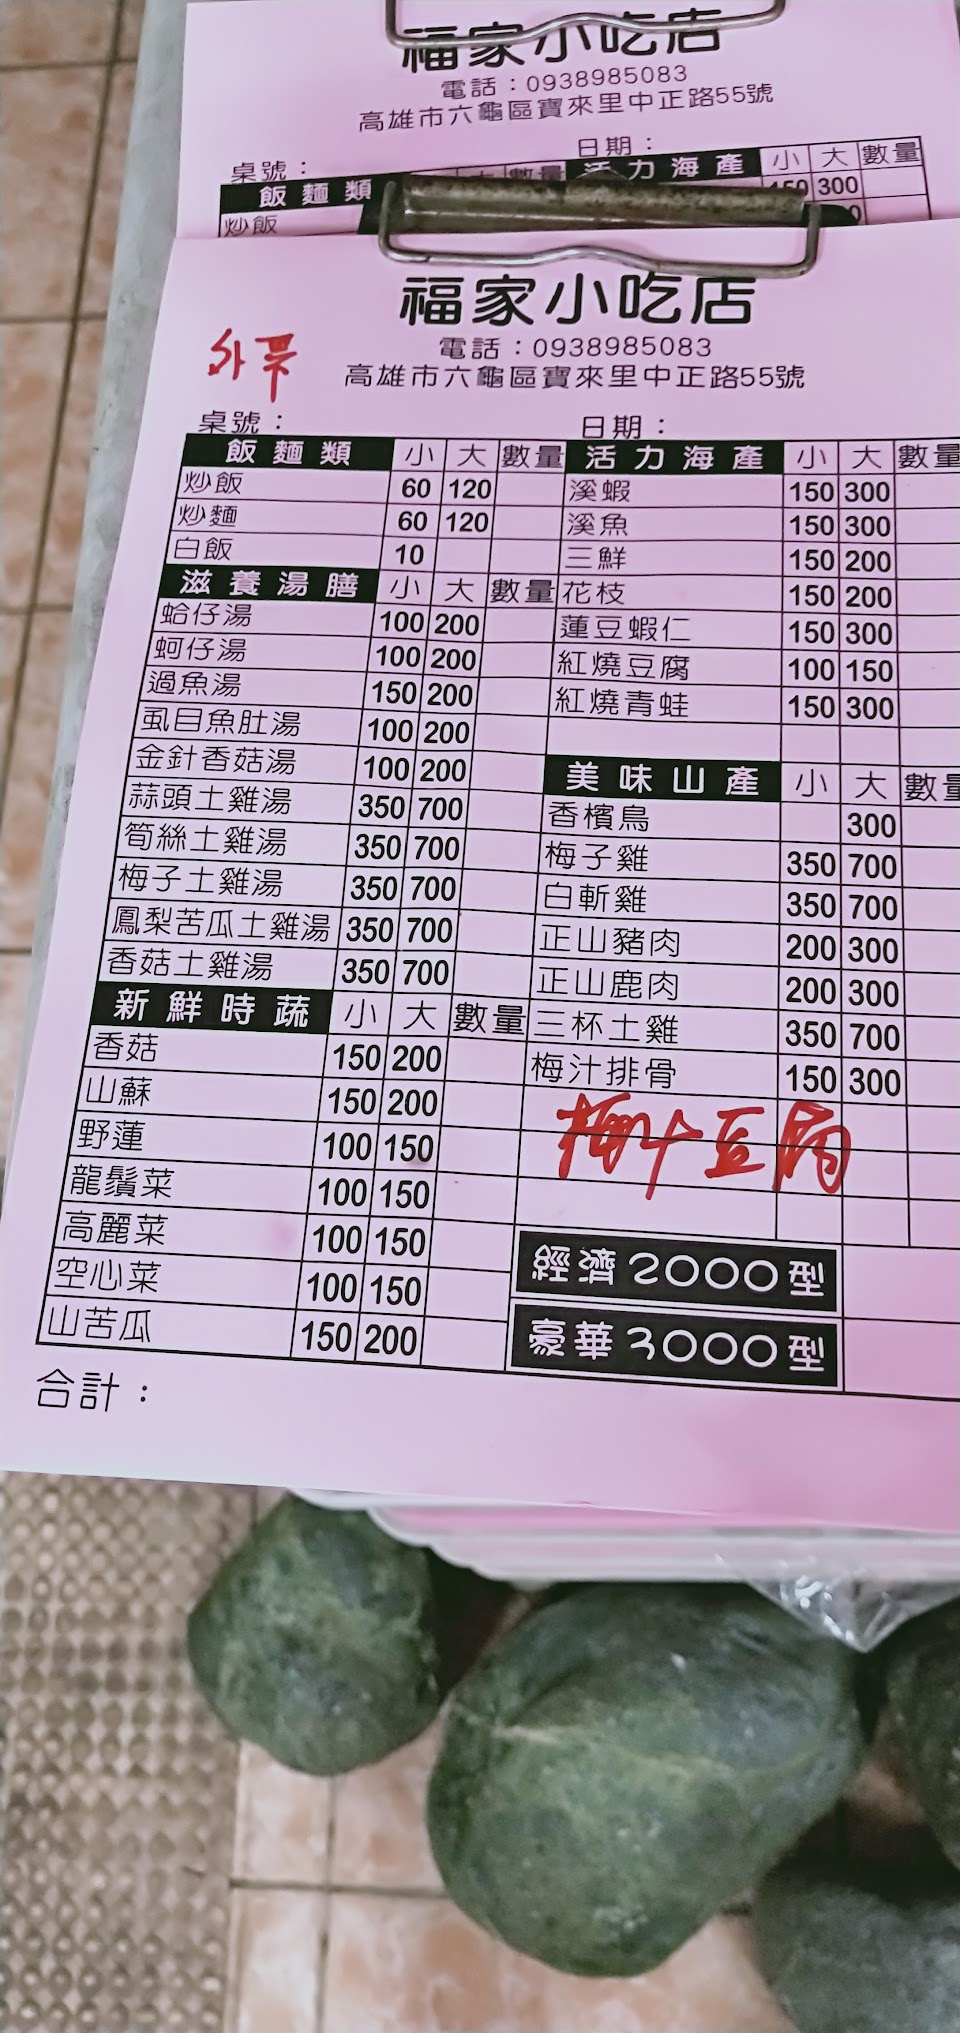 福家小吃店
電話：0938985083
高雄市六龜區寶來里中正路55號
桌號： 日期：
飯麵類 數量 活力海產 小 大 數量
炒飯 150 300
福家小吃店
電話：0938985083
高雄市六龜區寶來里中正路55號
桌號： 日期：
飯麵類 小 大 數量
炒飯 60 120
炒麵 60 120
白飯 10
滋養湯膳 小 大 數量
蛤仔湯 100 200
蚵仔湯 100 200
過魚湯 150 200
虱目魚肚湯 100 200
金針香菇湯 100 200
蒜頭土雞湯 350 700
筍絲土雞湯 350 700
梅子土雞湯 350 700
鳳梨苦瓜土雞湯 350 700
香菇土雞湯 350 700
新鮮時蔬 小 大 數量
香菇 150 200
山蘇 150 200
野蓮 100 150
龍鬚菜 100 150
高麗菜 100 150
空心菜 100 150
山苦瓜 150 200
合計：
活力海產 小 大 數量
溪蝦 150 300
溪魚 150 300
三鮮 150 200
花枝 150 200
蓮豆蝦仁 150 300
紅燒豆腐 100 150
紅燒青蛙 150 300
美味山產 小 大 數量
香檳鳥 300
梅子雞 350 700
白斬雞 350 700
正山豬肉 200 300
正山鹿肉 200 300
三杯土雞 350 700
梅汁排骨 150 300
梅汁豆腐
經濟2000型
豪華3000型